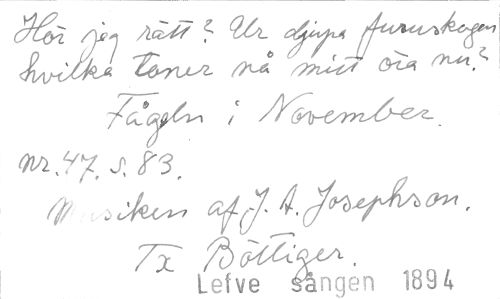 Hör jag rätt? Ur djupa furuskogen
hvilka toner nå mitt öra nu?
Fågeln i November.
nr. 47. s. 83.
Musiken af J. A. Josephson.
Tx Böttiger.
Lefve sången 1894